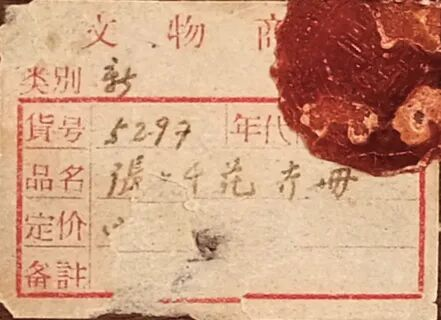 文物商
类别 新
貨号 5297 年代
品名 張 千花卉册
定价
备註